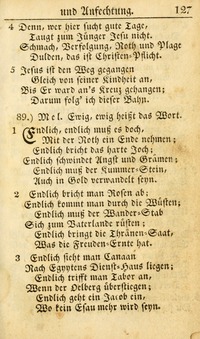 und Anfechtung. 127
4 Denn, wer hier sucht gute Tage,
Taugt zum Jünger Jesu nicht.
Schmach, Verfolgung, Noth und Plage
Dulden, das ist Christen-Pflicht.
5 Jesus ist den Weg gegangen
Gleich von seiner Kindheit an,
Bis Er ward an's Kreuz gehangen;
Darum folg' ich dieser Bahn.
89.) Mel. Ewig, ewig heißt das Wort.
1 Endlich, endlich muß es doch,
Mit der Noth ein Ende nehmen;
Endlich bricht das harte Joch;
Endlich schwindet Angst und Grämen;
Endlich muß der Kummer-Stein,
Auch in Gold verwandelt seyn.
2 Endlich bricht man Rosen ab;
Endlich kommt man durch die Wüsten;
Endlich muß der Wander-Stab
Sich zum Vaterlande rüsten;
Endlich bringt die Thränen-Saat,
Was die Freuden-Ernte hat.
3 Endlich sieht man Canaan
Nach Egyptens Dienst-Haus liegen;
Endlich trifft man Tabor an,
Wenn der Oelberg überstiegen;
Endlich geht ein Jacob ein,
Wo kein Esau mehr wird seyn.